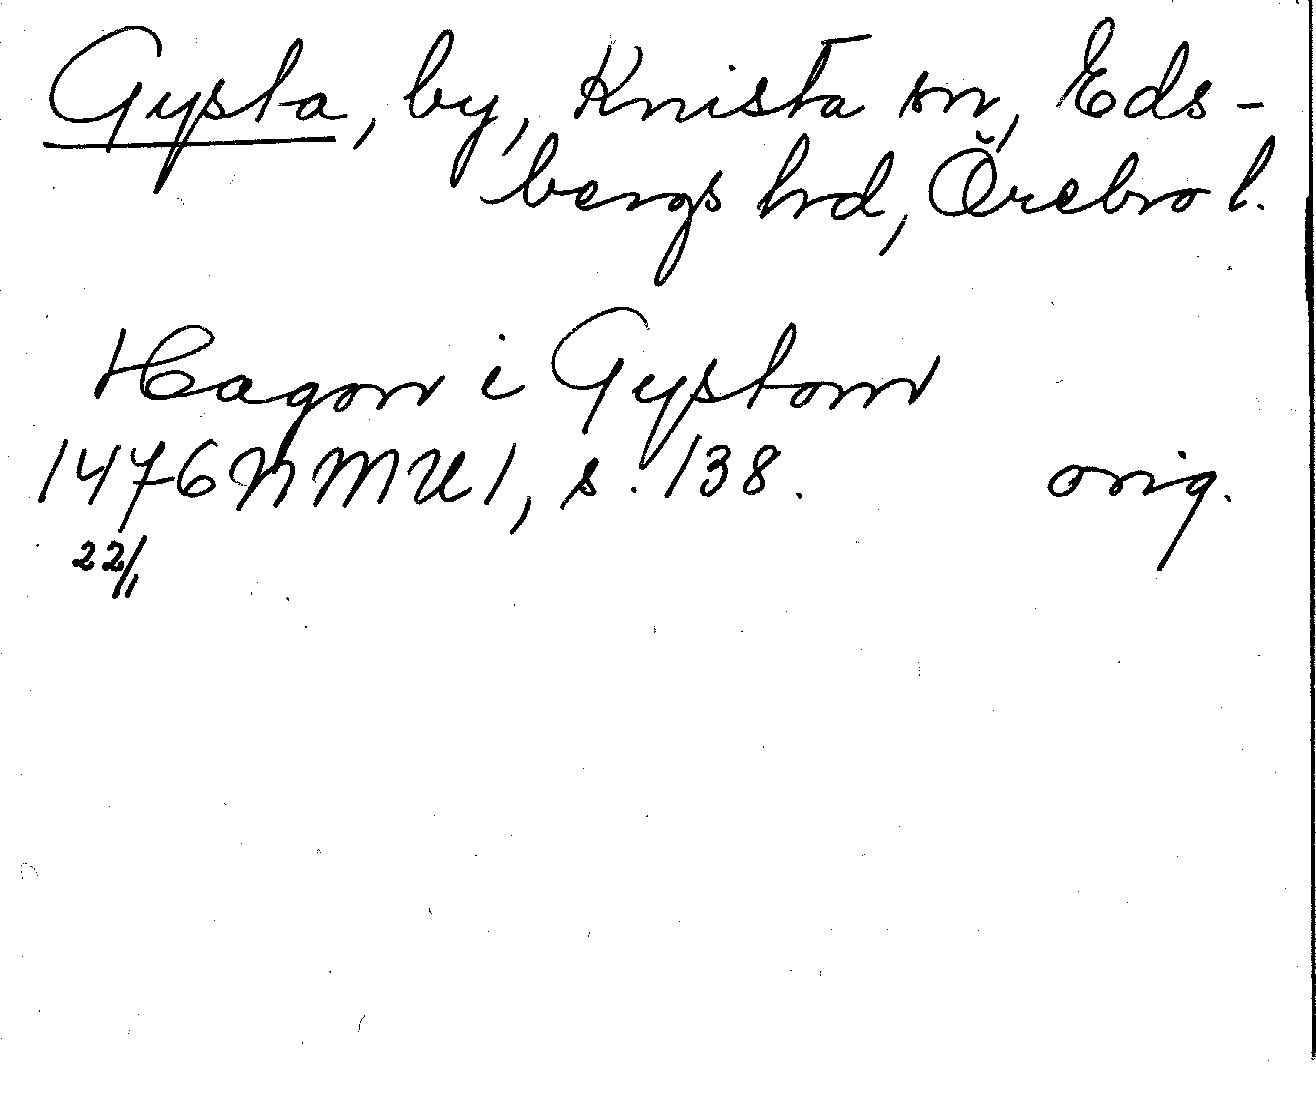 Gysta, by, Knista sn, Eds-
bergs hrd, Örebro l.
Hagon i Gystom
1476 NMU 1, s. 138. orig.
22/1